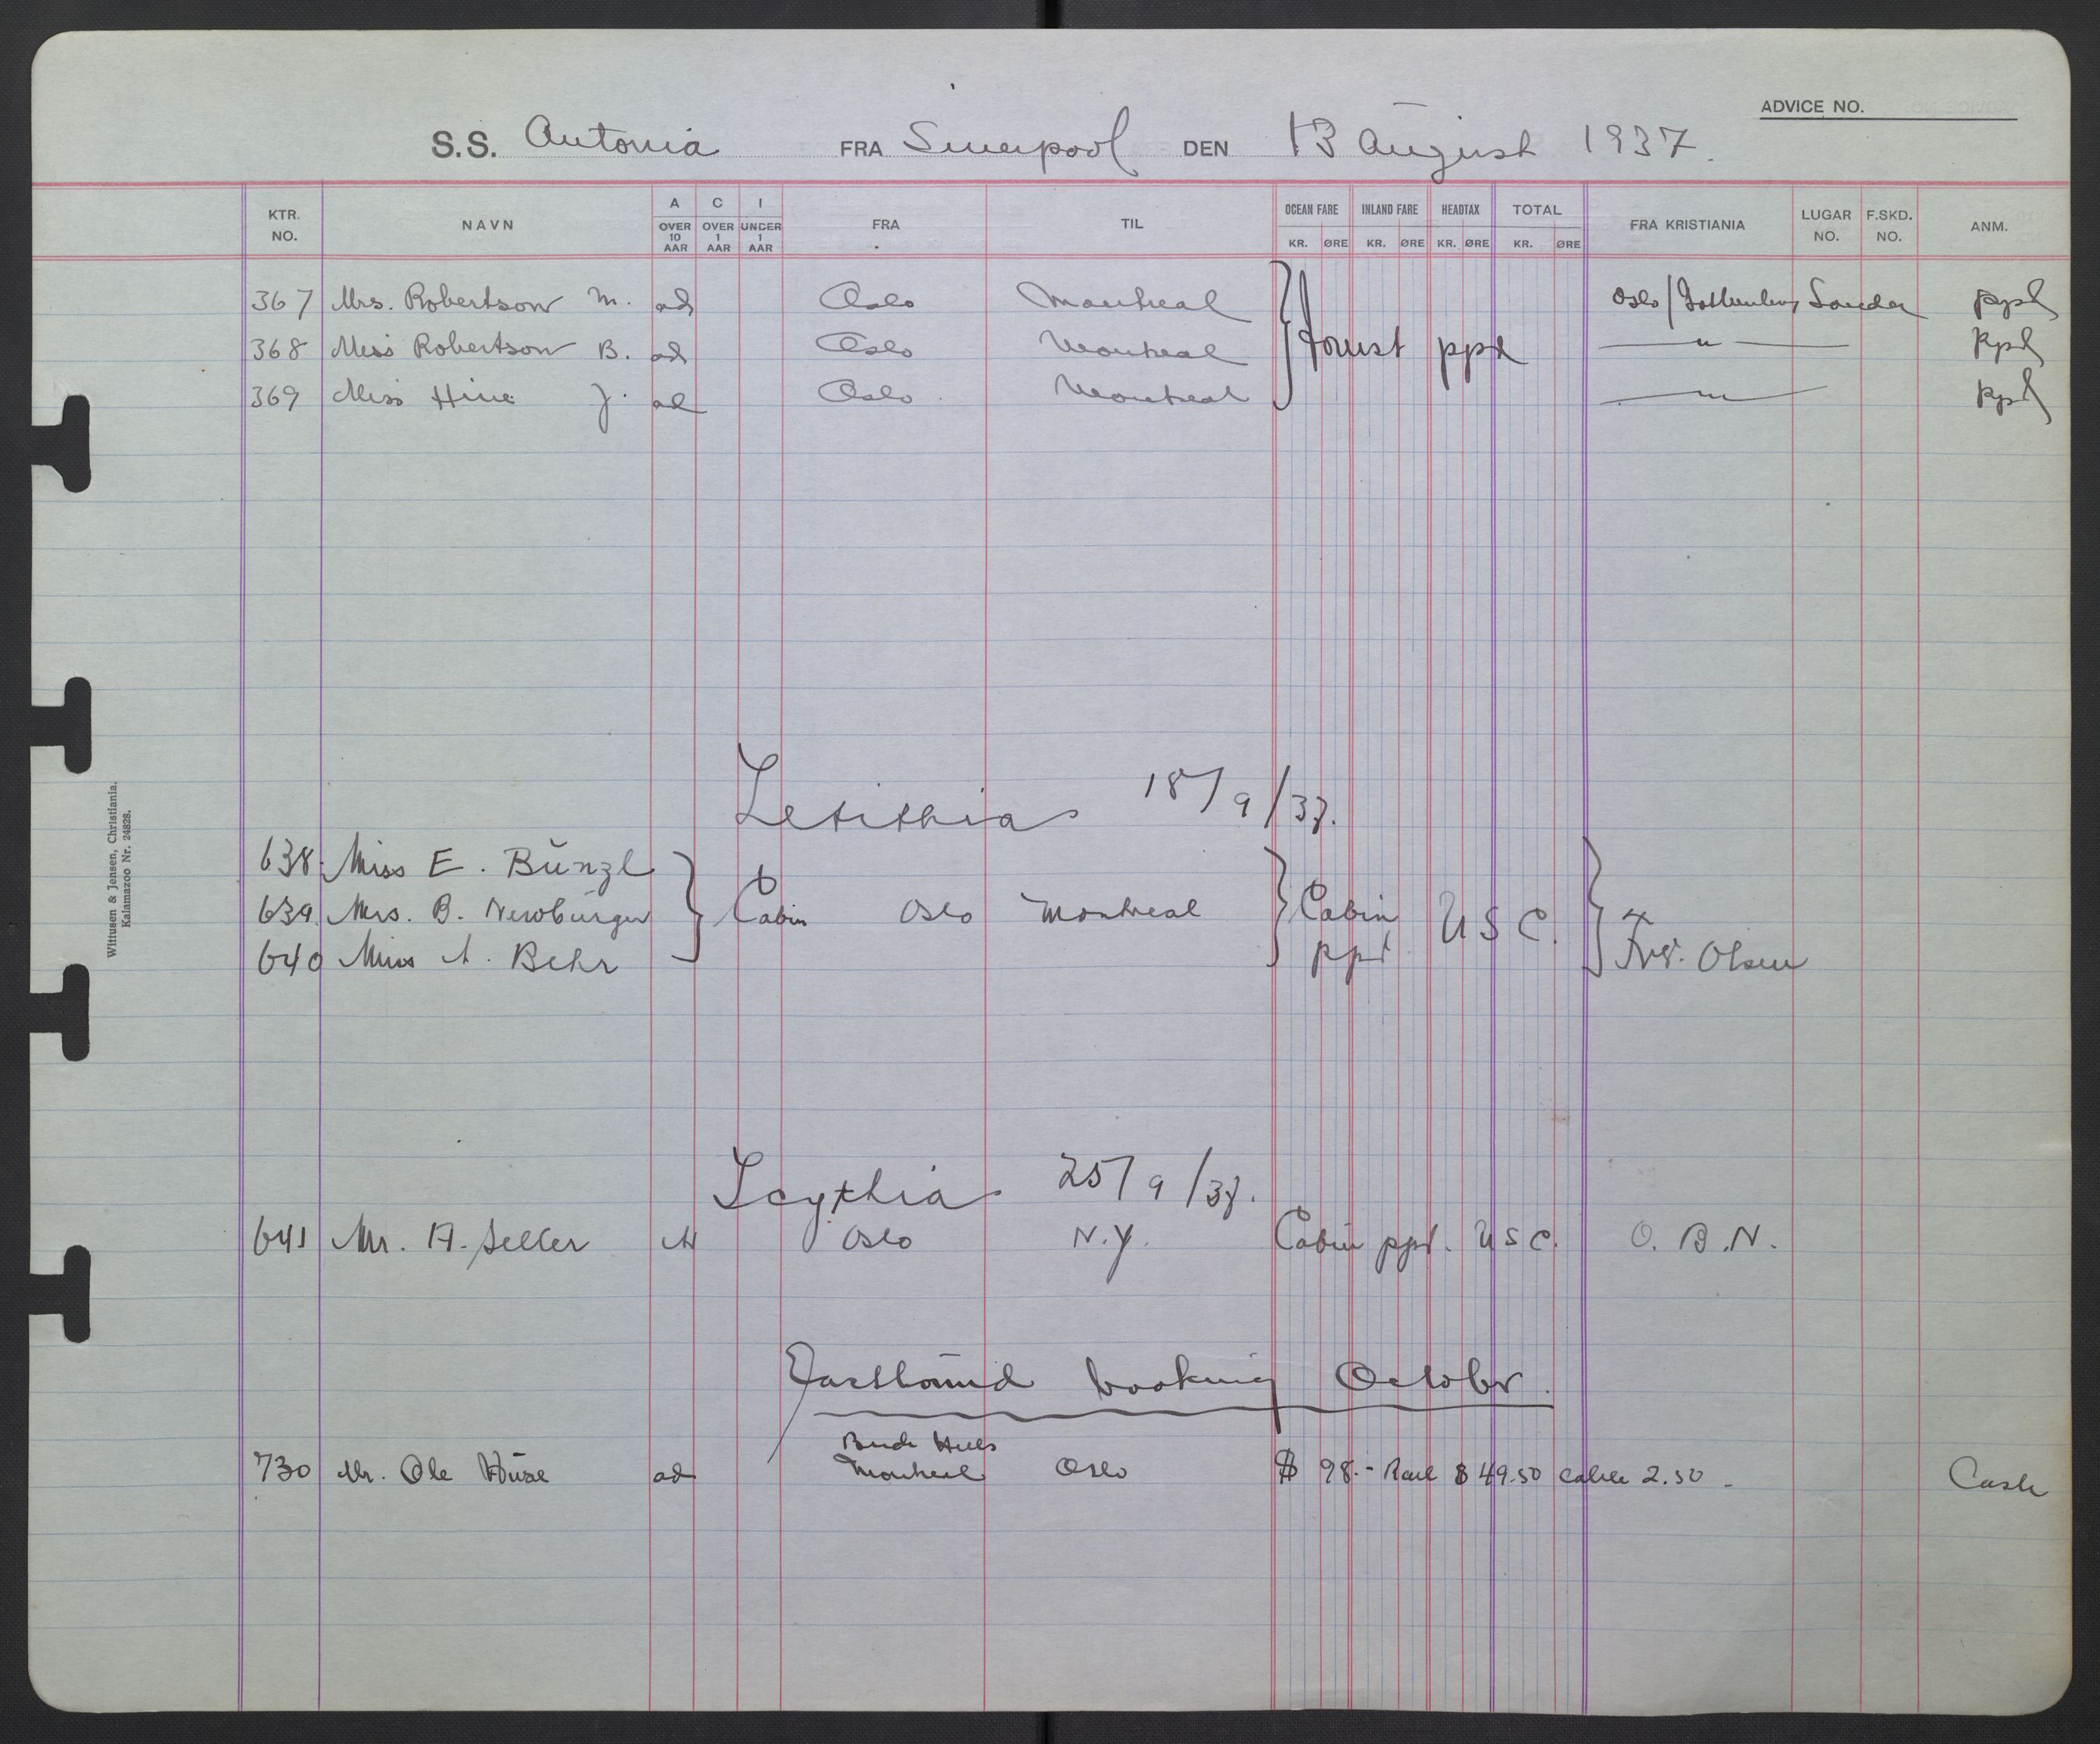 ADVICE NO.
S.S. Antonia FRA Liverpool DEN 13 August 1937.
KTR. NO. NAVN A OVER 10 AAR C OVER 1 AAR I UNDER 1 AAR FRA TIL OCEAN FARE KR. ØRE INLAND FARE KR. ØRE HEADTAX KR. ØRE TOTAL KR. ØRE FRA KRISTIANIA LUGAR NO. F.SKD. NO. ANM.
367 Mrs. Robertson M. ad Oslo Montreal Oslo/Gothenburg London ppd
368 Miss Robertson B. ad Oslo Montreal tourist ppd — " — ppd
369 Miss Hine J. ad Oslo Montreal — " — ppd
Letithia 18/9/37.
638 Miss E. Bunzl
639. Mrs. B. Newburger Cabin Oslo Montreal Cabin ppd U S C.
640 Miss A. Behr Fr. Olsen
Scythia 25/9/37.
641 Mr. A. Seller A Oslo N.Y. Cabin ppd. U S C. O. B. N.
Eastbound booking October.
730 Mr. Ole ad Montreal Oslo $ 98.- Rail $ 49.50 cable 2.50 - Cash
Wittusen & Jensen, Christiania.
Kalamazoo Nr. 24828.